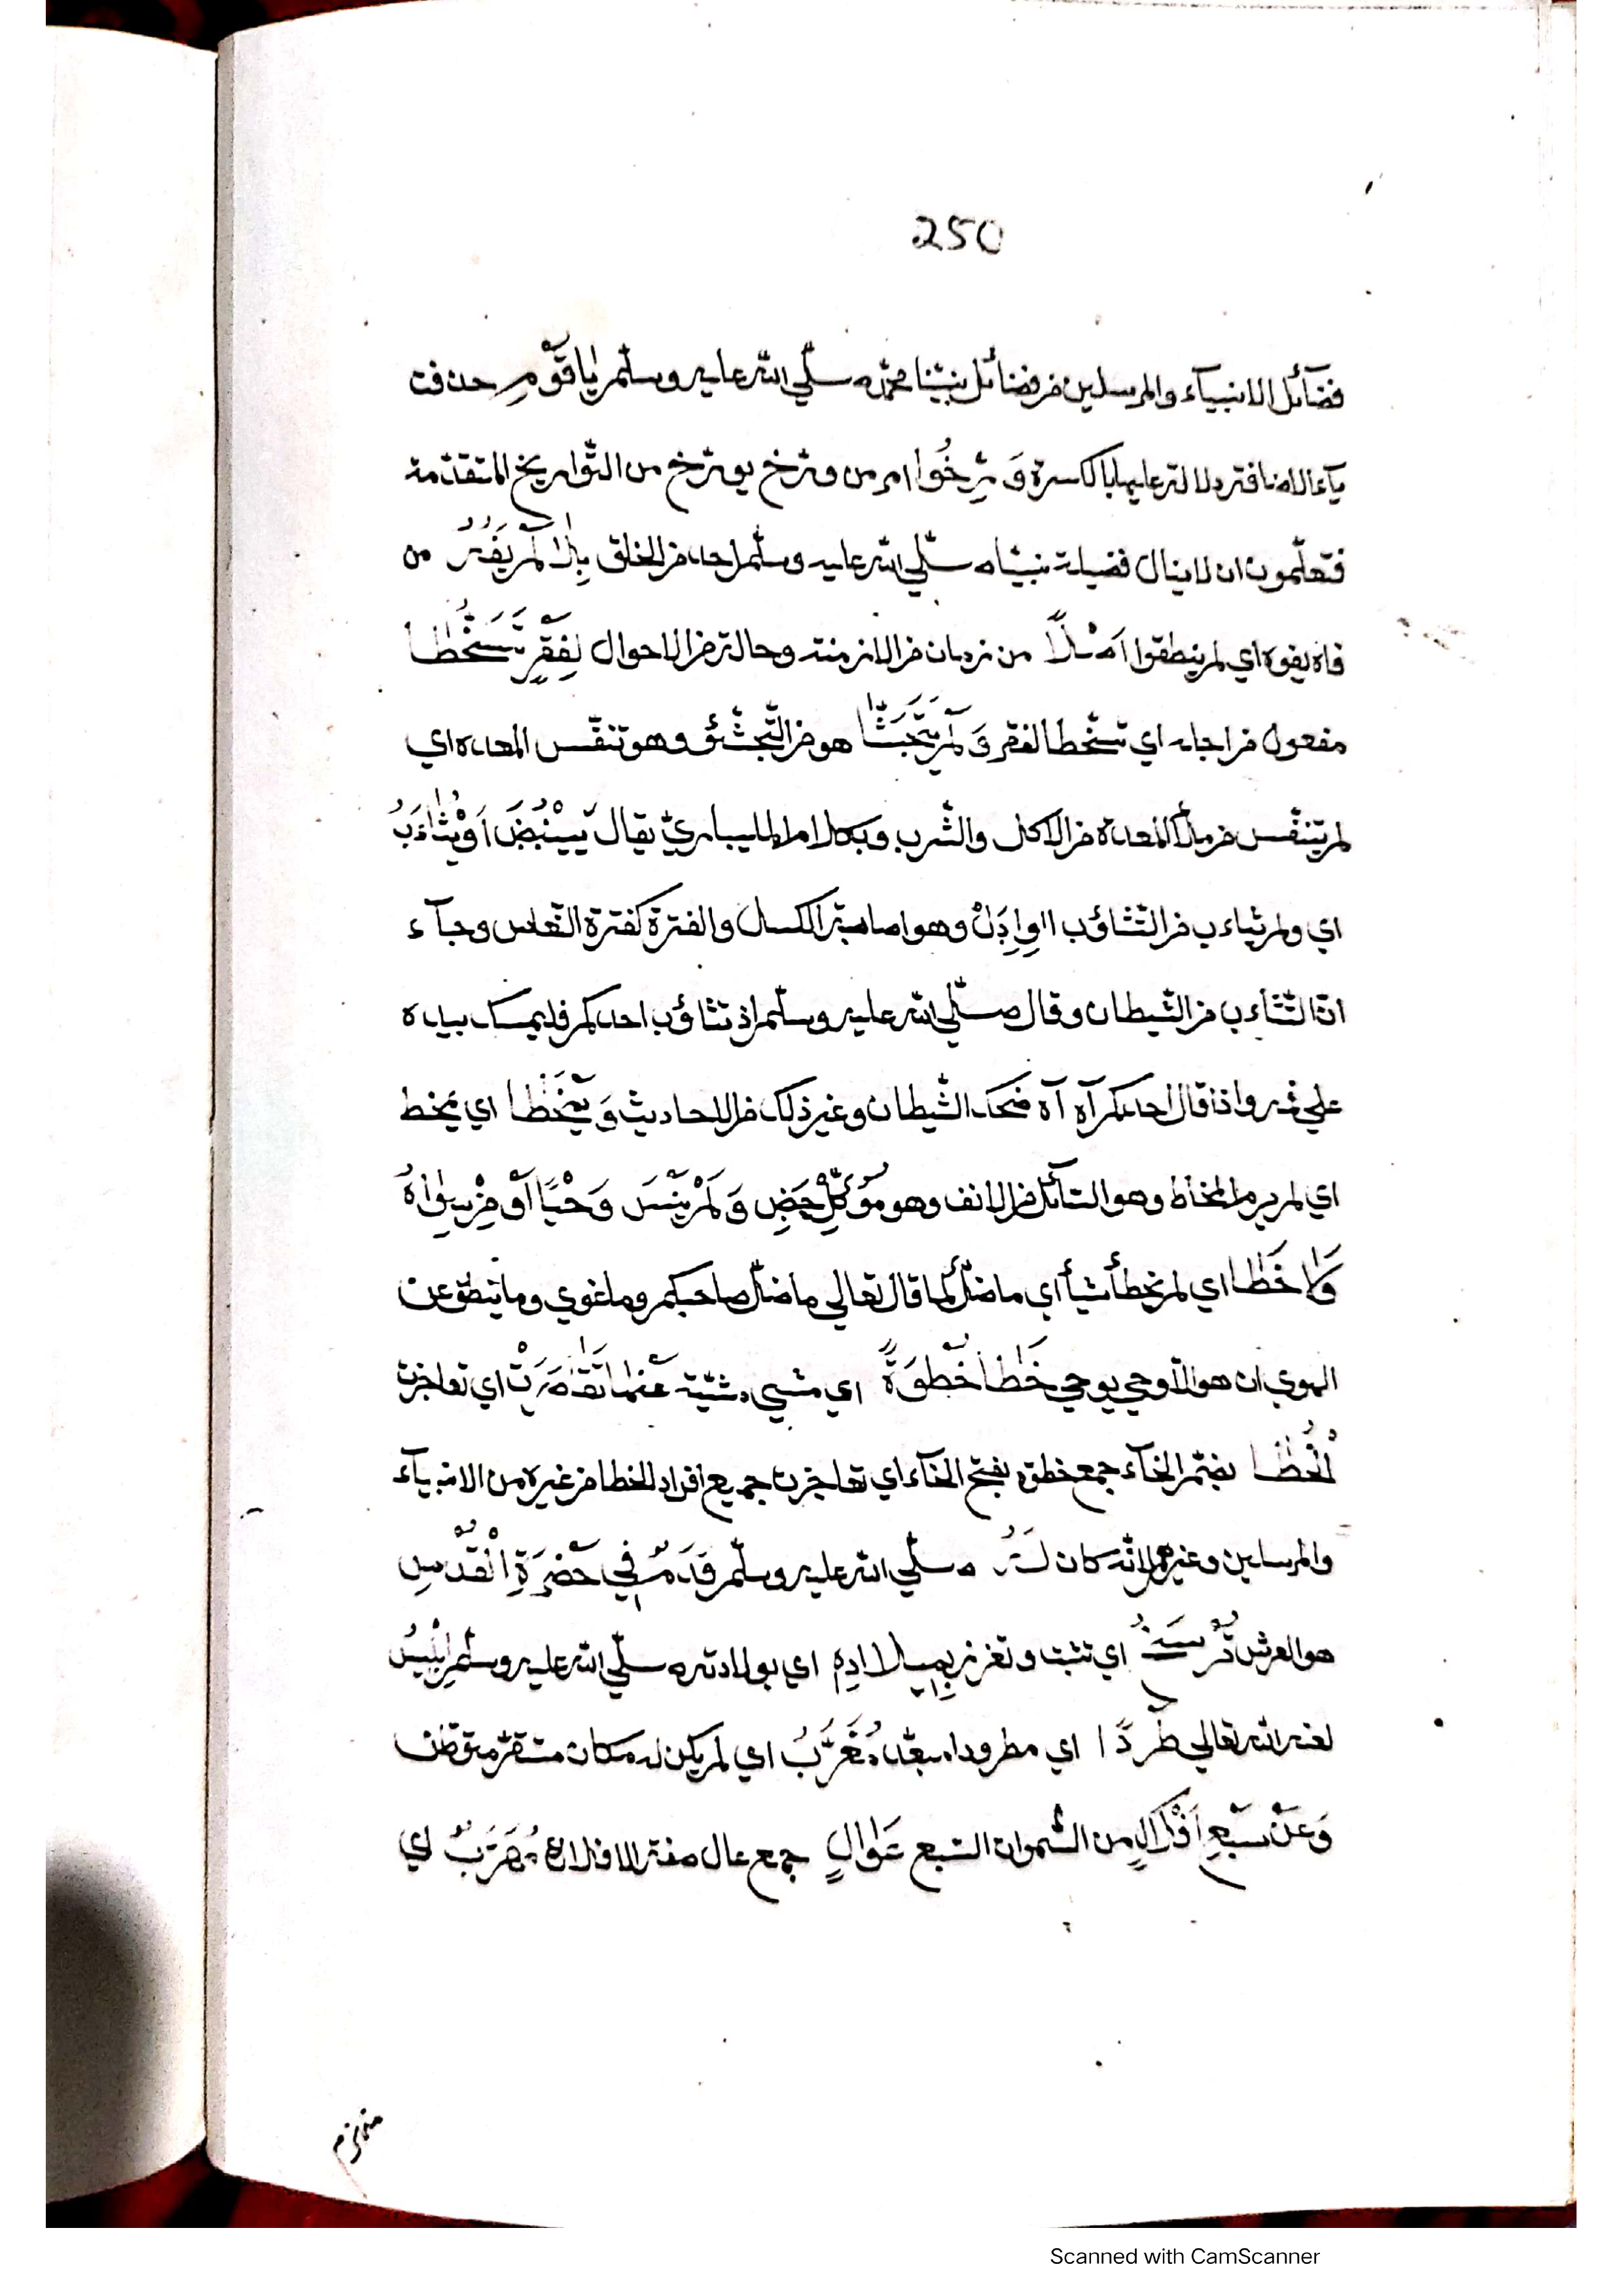 250
فضآئل الانبيآء والمرسلين من فضائل نبيّنا محمّد صلّي الله عليه وسلّم يٰا قَوْمِ حذفت
يآء الاضافة دلالة عليها بالكسرة وَرِّخُوا امر من ورّخ يورّخ من التّواريخ المتقدّمة
فتعلّمون ان لا ينال فضيلة نبيّنا صلّي الله عليه وسلّم احد من الخلق لَمْ يَفُهْ من
فاه يفوه اي لم ينطقوا اَصْلًا من زمان من الازمنة وحالة من الاحوال لِفَقْرٍ تَسَخُّطًا
مفعول من اجله اي تسخّطا لفقر وَلَمْ يَتَجَشَّا هو من التّجشّئ وهو تنفّس المعدة اي
لم يتنفّس من ملأ المعدة من الاكل والشّرب وبكلام المليباريّ يقال اَوْ يَثٰاءَبُ
اي ولم يثاءب من التّثاؤب وهو اصابة الكسل والفترة كفترة النّعاس وجآء
انّ التّثاءب من الشّيطان وقال صلّي الله عليه وسلّم اذ تثاؤب احدكم فليمسك بيده
علي فمه واذا قال احدكم آه آه ضحك الشّيطان وغير ذلك من الاحاديث اي يمخط
اي لم يرم المخاط وهو السّآئل من الانف وهو وَلَمْ يَنْسَ وَحْيًا اَوْ
وَلَا خَطٰا اي لم يخطأ شيأ اي ما ضلّ لما قال تعالي ما ضلّ صاحبكم وما غوي وما ينطق عن
الهوي ان هو الّا وحي يوحي خَطٰا خُطْوَةً اي مشي مشية عَنْهٰا تَقٰاصَرَتْ اي تعاجزت
الْخُطٰا بضمّ الخآء جمع خطوة بفتح الخآء اي تعاجزت جميع افراد الخطا من غيره من الانبيآء
والمرسلين وغيرهم لانّه كان لَهُ صلّي الله عليه وسلّم قَدَمٌ فِي حَضْرَةِ الْقُدْسِ
هو العرش تُرْسَخُ اي تثبت وتغرز بِمِيلَادِهِ اي بولادته صلّي الله عليه وسلّم اِبْلِيسُ
لعنه الله تعالي طَرْدًا اي مطرودا مبعّد مُغَرَّبُ اي لم يكن له مكان مستقرّ متوطّن
وَعَنْ سَبْعِ اَفْلَاكٍ من السّموات السّبع عَوٰالٍ جمع عال صفة الافلاك مُهَرَّبٌ اي
Scanned with CamScanner